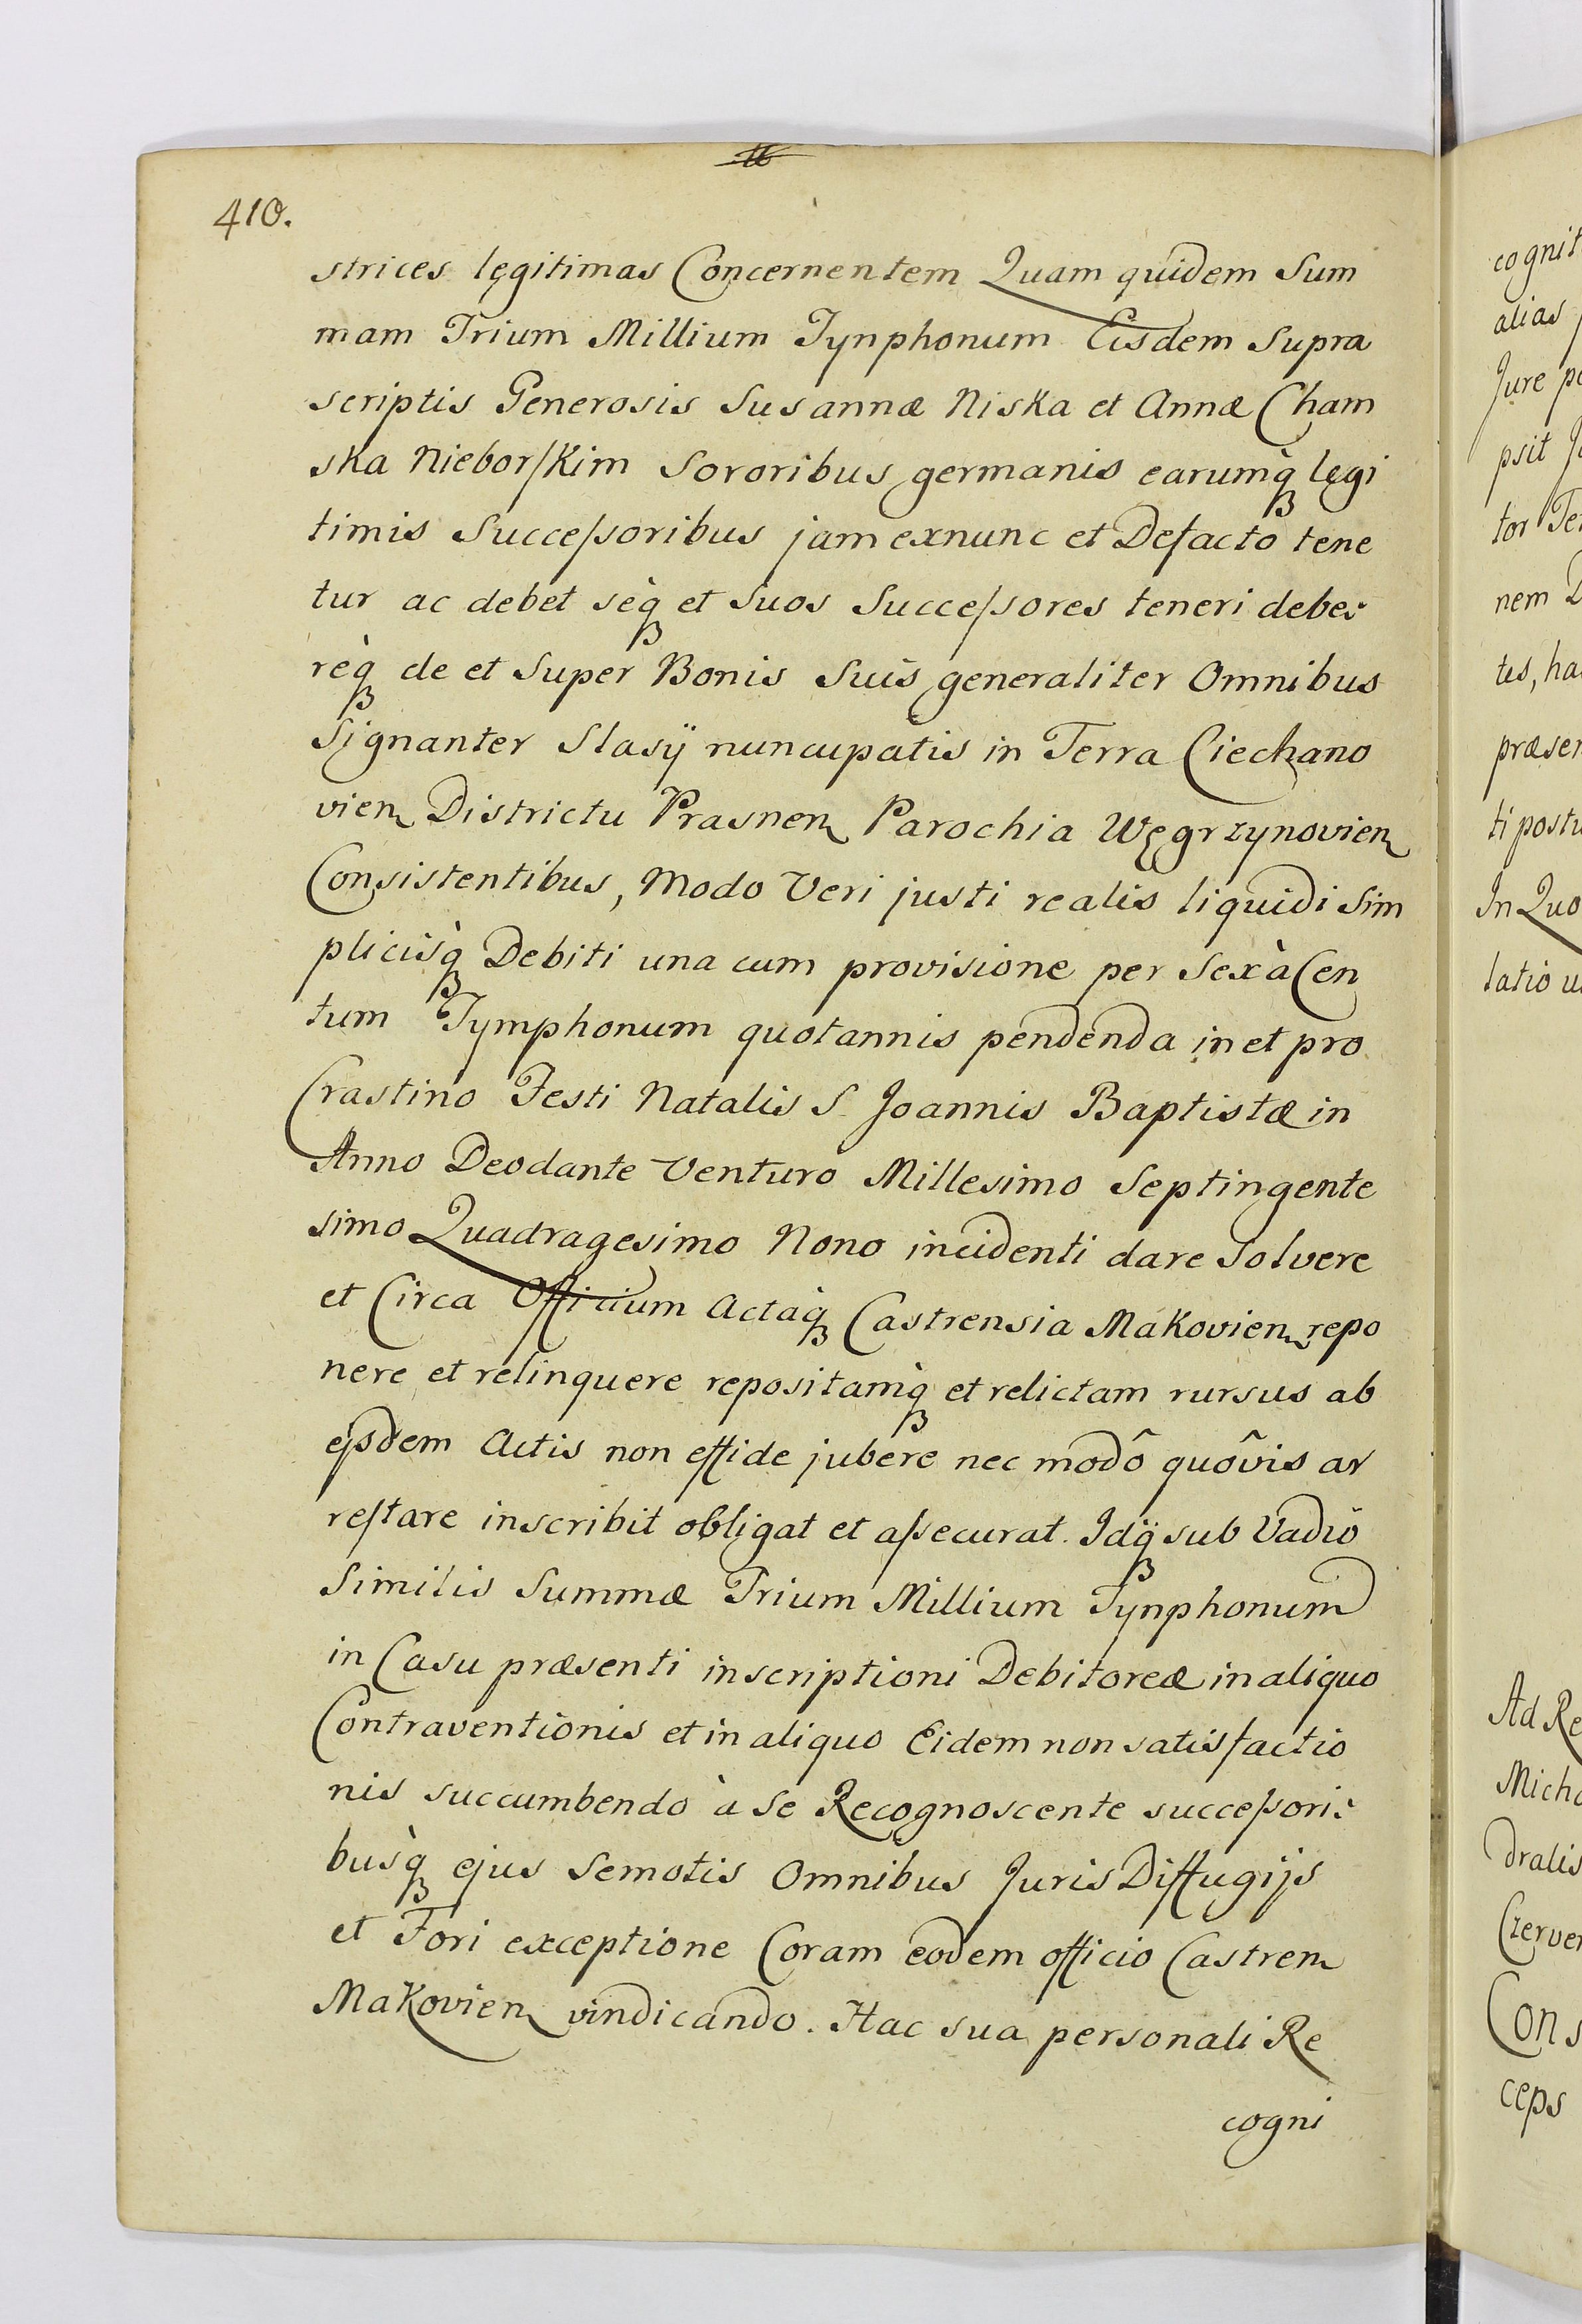 410.
strices legitimas Concernentem Quam quidem Sum
mam Trium Millium Tynphonum Eisdem Supra
scriptis Generosis Susannæ Niska et Annæ Cham
ska Nieborſkim Sororibus germanis earumq̀ꝫ legi
timis Succeſsoribus jam exnunc et Defacto tene
tur ac debet sèqꝫ et Suos Succeſsores teneri debe:
rèqꝫ de et Super Bonis Suis generaliter Omnibus
Signanter Slasÿ nuncupatis in Terra Ciechano
vien Districtu Prasnen Parochia Węgrzynovien
Consistentibus, Modo Veri justi realis liquidi Sim
plicisq̀ꝫ Debiti una cum provisione per Sex à Cen
tum Tymphonum quotannis pendenda in et pro
Crastino Festi Natalis S. Joannis Baptistæ in
Anno Deodante Venturo Millesimo Septingente
simo Quadragesimo Nono incidenti dare Solvere
et Circa Officium Actaq̀ꝫ Castrensia Makovien repo
nere et relinquere repositamq̀ꝫ et relictam rursus ab
ejsdem Actis non effide jubere nec modô quôvis ar
reſtare inscribit obligat et aſsecurat. Idqꝫ sub Vadio
Similis Summæ Trium Millium Tynphonum
in Casu præsenti inscriptioni Debitoreæ in aliquo
Contraventionis et in aliquo Eidem non satisfactio
nis succumbendo à Se Recognoscente succeſsori:
busq̀ꝫ ejus Semotis Omnibus Juris Diffugijs
et Fori exceptione Coram eodem officio Castren
Makovien vindicando. Hac sua personali Re
cogni
cognit
alias
Jure po
psit
tor Te
nem D
tes, ha
præsen
ti postu
In Quo
latio
Ad Re
Micha
dralis
Czerve
Cons
ceps